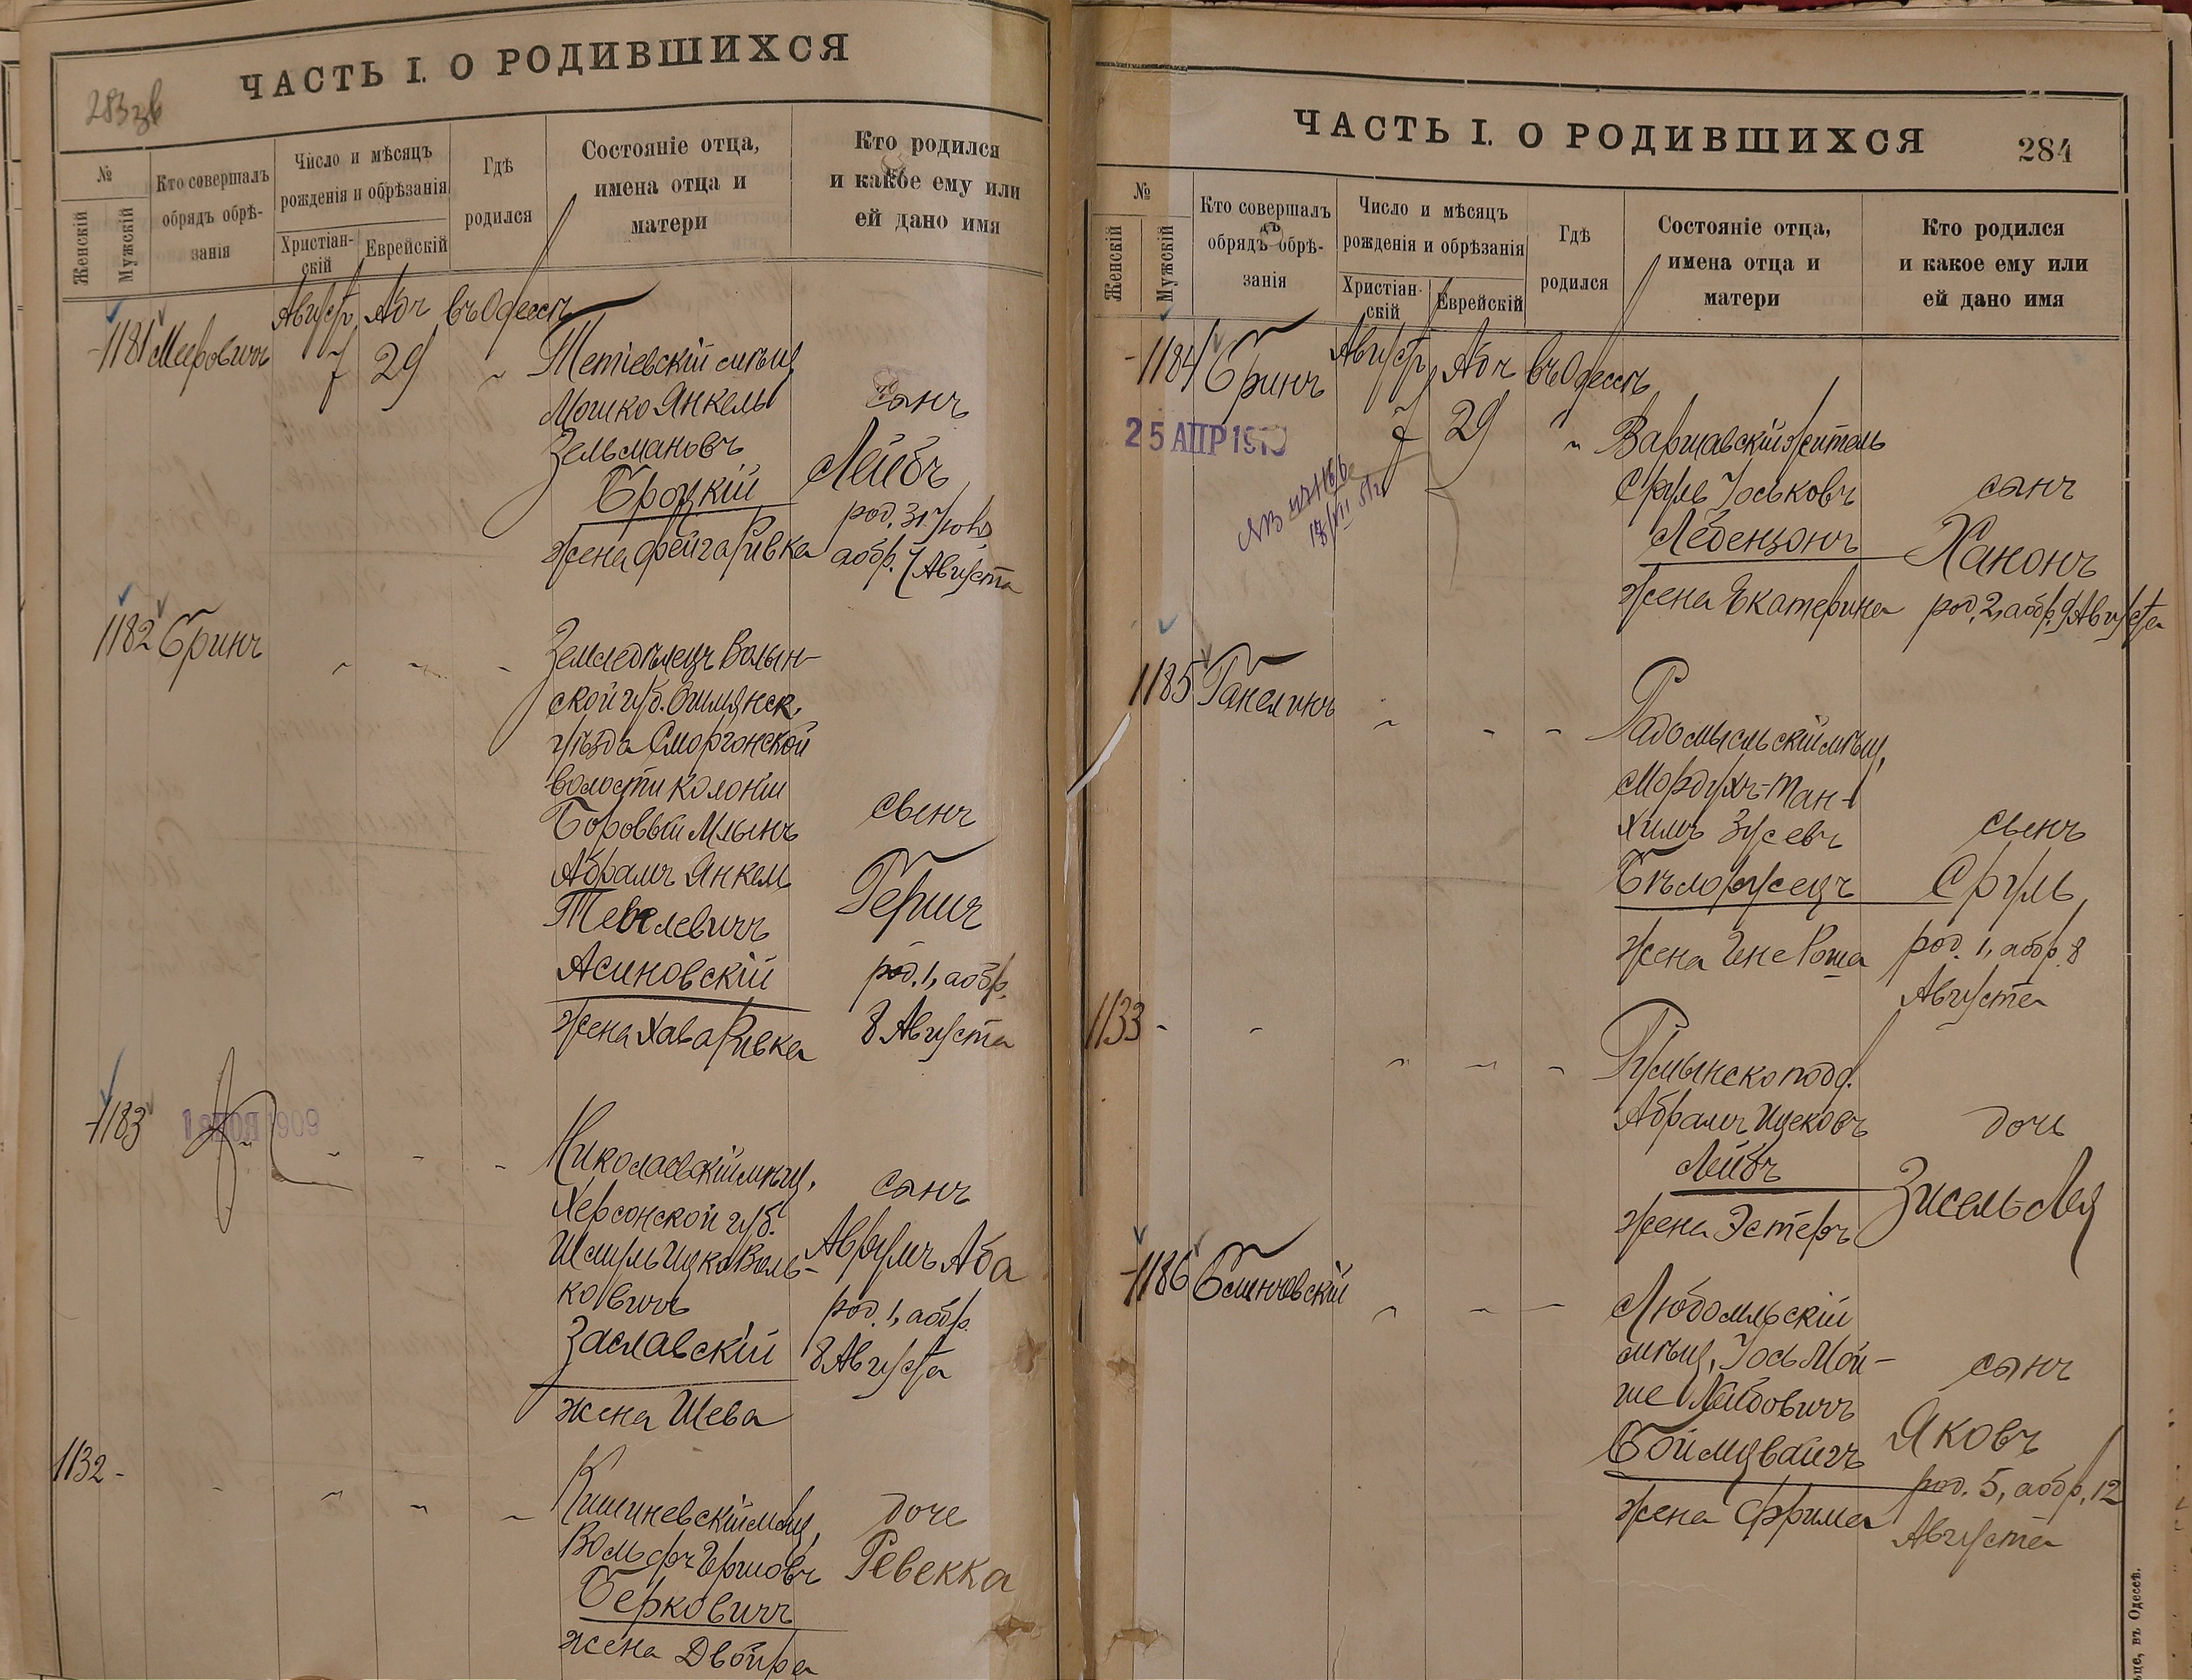 283 зв
ЧАСТЬ I. О РОДИВШИХСЯ
№
Женскій
Мужскій
Кто совершалъ
обрядъ обрѣ-
занія
Число и мѣсяцъ
рожденія и обрѣзанія
Христіан-
скій
Еврейскій
Гдѣ
родился
Состояніе отца,
имена отца и
матери
Кто родился
и какое ему или
ей дано имя
Август Абъ въ Одессѣ
1181 Мееровичъ 7 29 "
Тетіевскій мѣщ.
Мошко Янкель
Зельмановъ
Броцкій
жена Фейга Ривка
сынъ
Лейбъ
род. 31 Іюля
а обр. 7 Августа
1182 Бринъ " " "
Земледѣлецъ Волын-
ской губ. Ошмянск.
уѣзда Сморгонской
волости колоніи
Боровый Млынъ
Абрамъ Янкель
Тевелевичъ
Асиновскій
жена Хава Ривка
сынъ
Гершъ
род. 1, а обр.
8 Августа
1183 " " " "
1909
Николаевскій мѣщ.
Херсонской губ.
Шмуль Ицко Воль-
ковичъ
Заславскій
жена Шева
сынъ
Аврумъ Аба
род. 1, а обр.
8 Августа
1132 - " " " "
Кишиневскій мѣщ.
Вольфъ Гершовъ
Берковичъ
жена Двойра
дочь
Ревекка
ЧАСТЬ I. О РОДИВШИХСЯ
284
№
Женскій
Мужскій
Кто совершалъ
обрядъ обрѣ-
занія
Число и мѣсяцъ
рожденія и обрѣзанія
Христіан-
скій
Еврейскій
Гдѣ
родился
Состояніе отца,
имена отца и
матери
Кто родился
и какое ему или
ей дано имя
Август Абъ въ Одессѣ
1184 Бринъ 7 29 "
25 АПР
Варшавскій житель
Сруль Іоськовъ
Лебензонъ
жена Екатерина
сынъ
Ханонъ
род. 2, а обр. 9 Августа
1185 Ганелинъ " " "
Радомысльскій мѣщ.
Мордухъ-Тан-
химъ Зусевъ
Бѣлорусецъ
жена Гене Роша
сынъ
Сруль
род. 1, а обр. 8
Августа
1133 - " " " "
Румынско подд.
Абрамъ Ицековъ
Лейбъ
жена Эстеръ
дочь
Зисель-Лея
1186 " " "
Любомльскій
мѣщ. Іось Мой-
ше Лейбовичъ
Боймцвайгъ
жена Фрима
сынъ
Яковъ
род. 5, а обр. 12
Августа
въ Одессѣ.